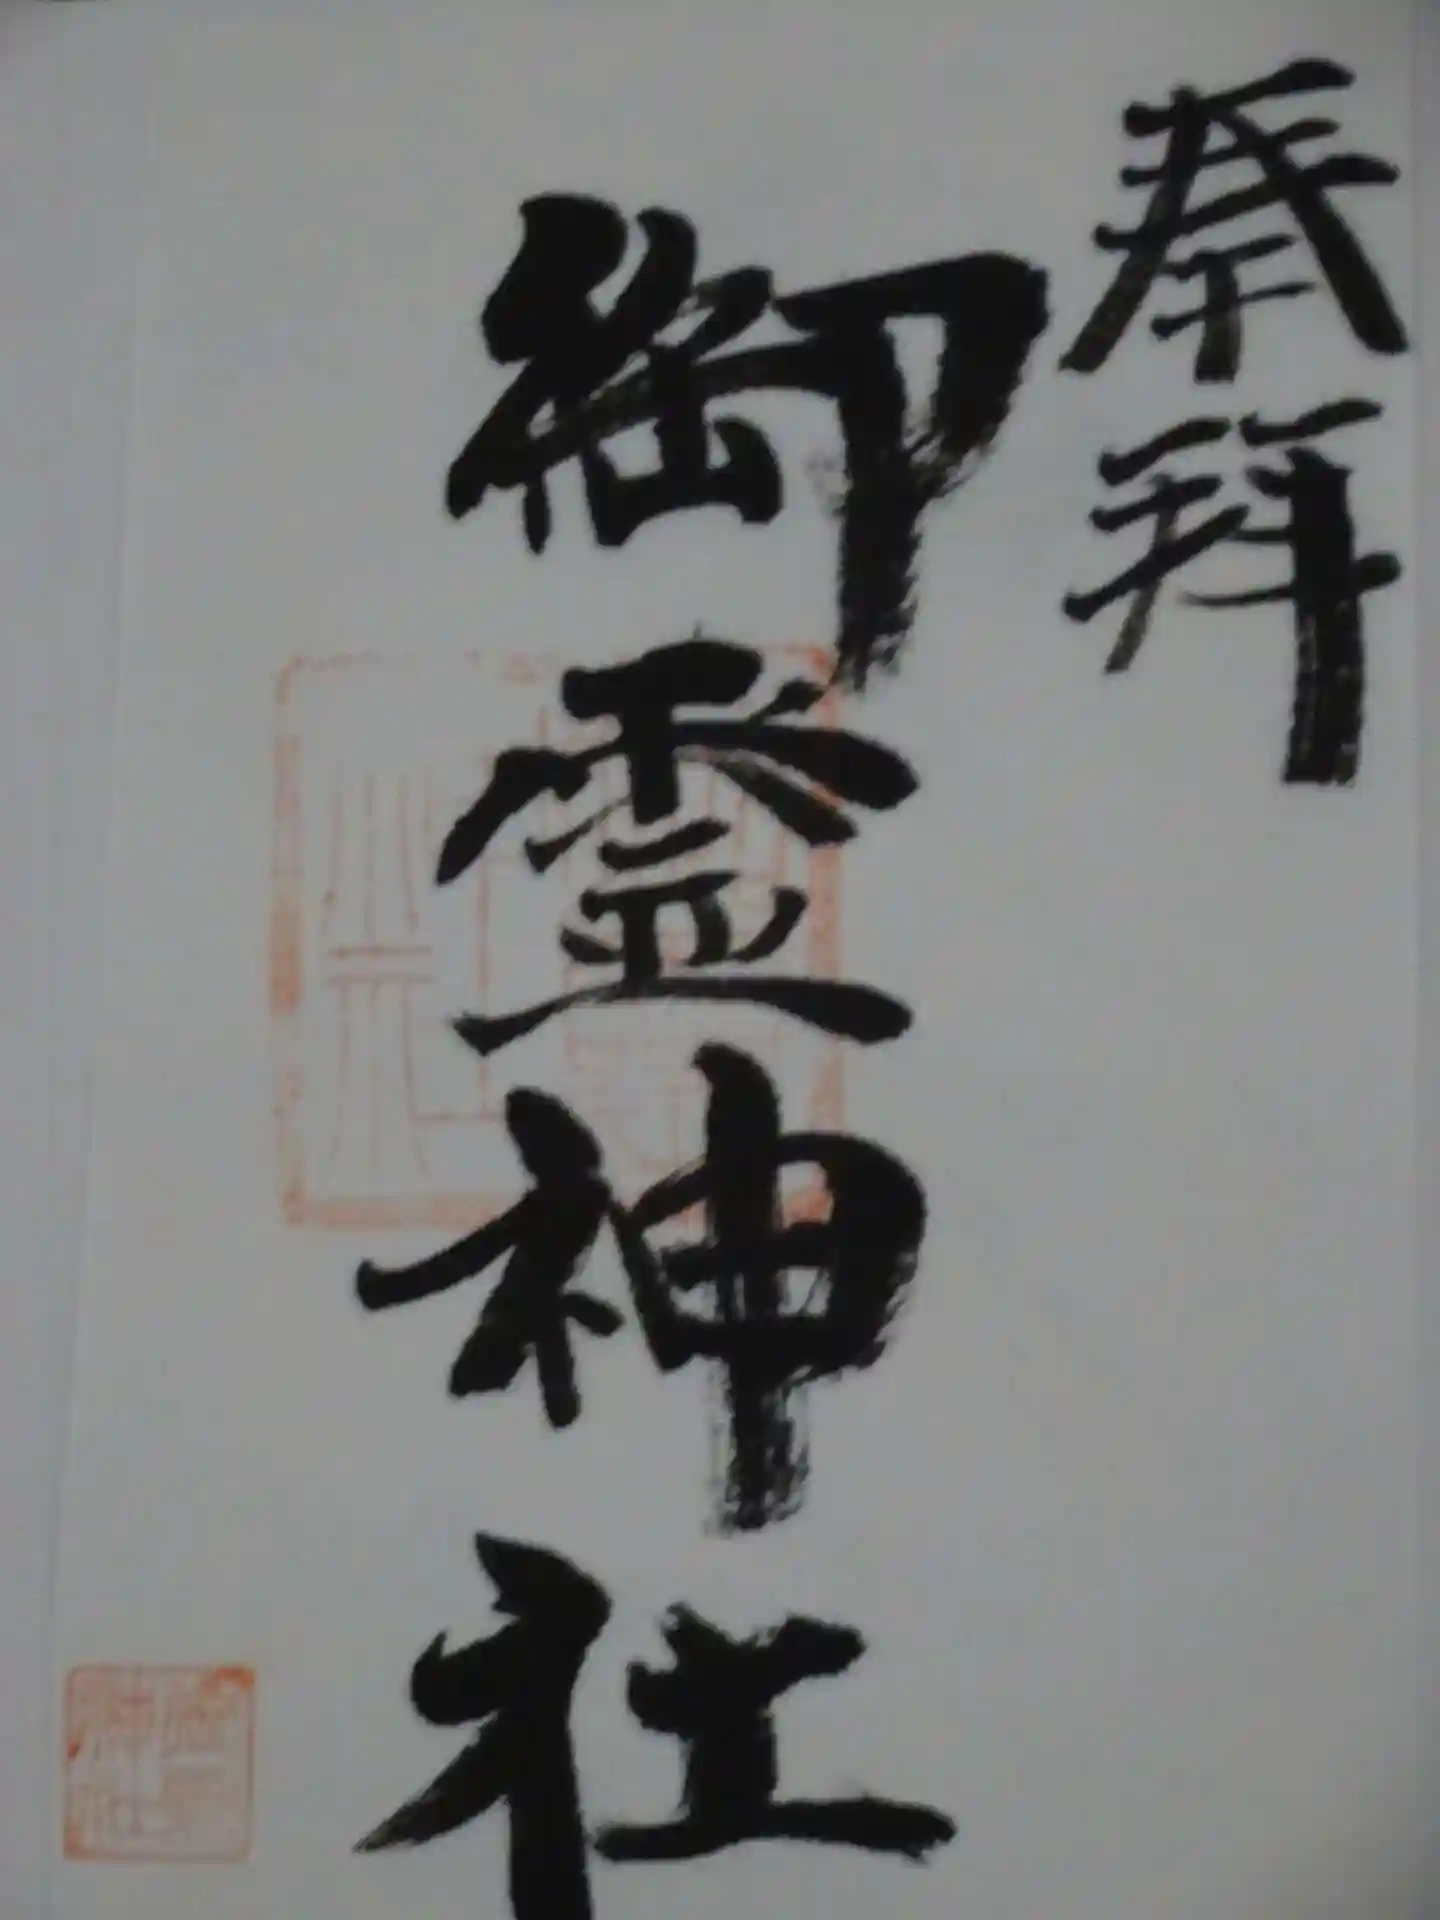 奉拝
御霊神社